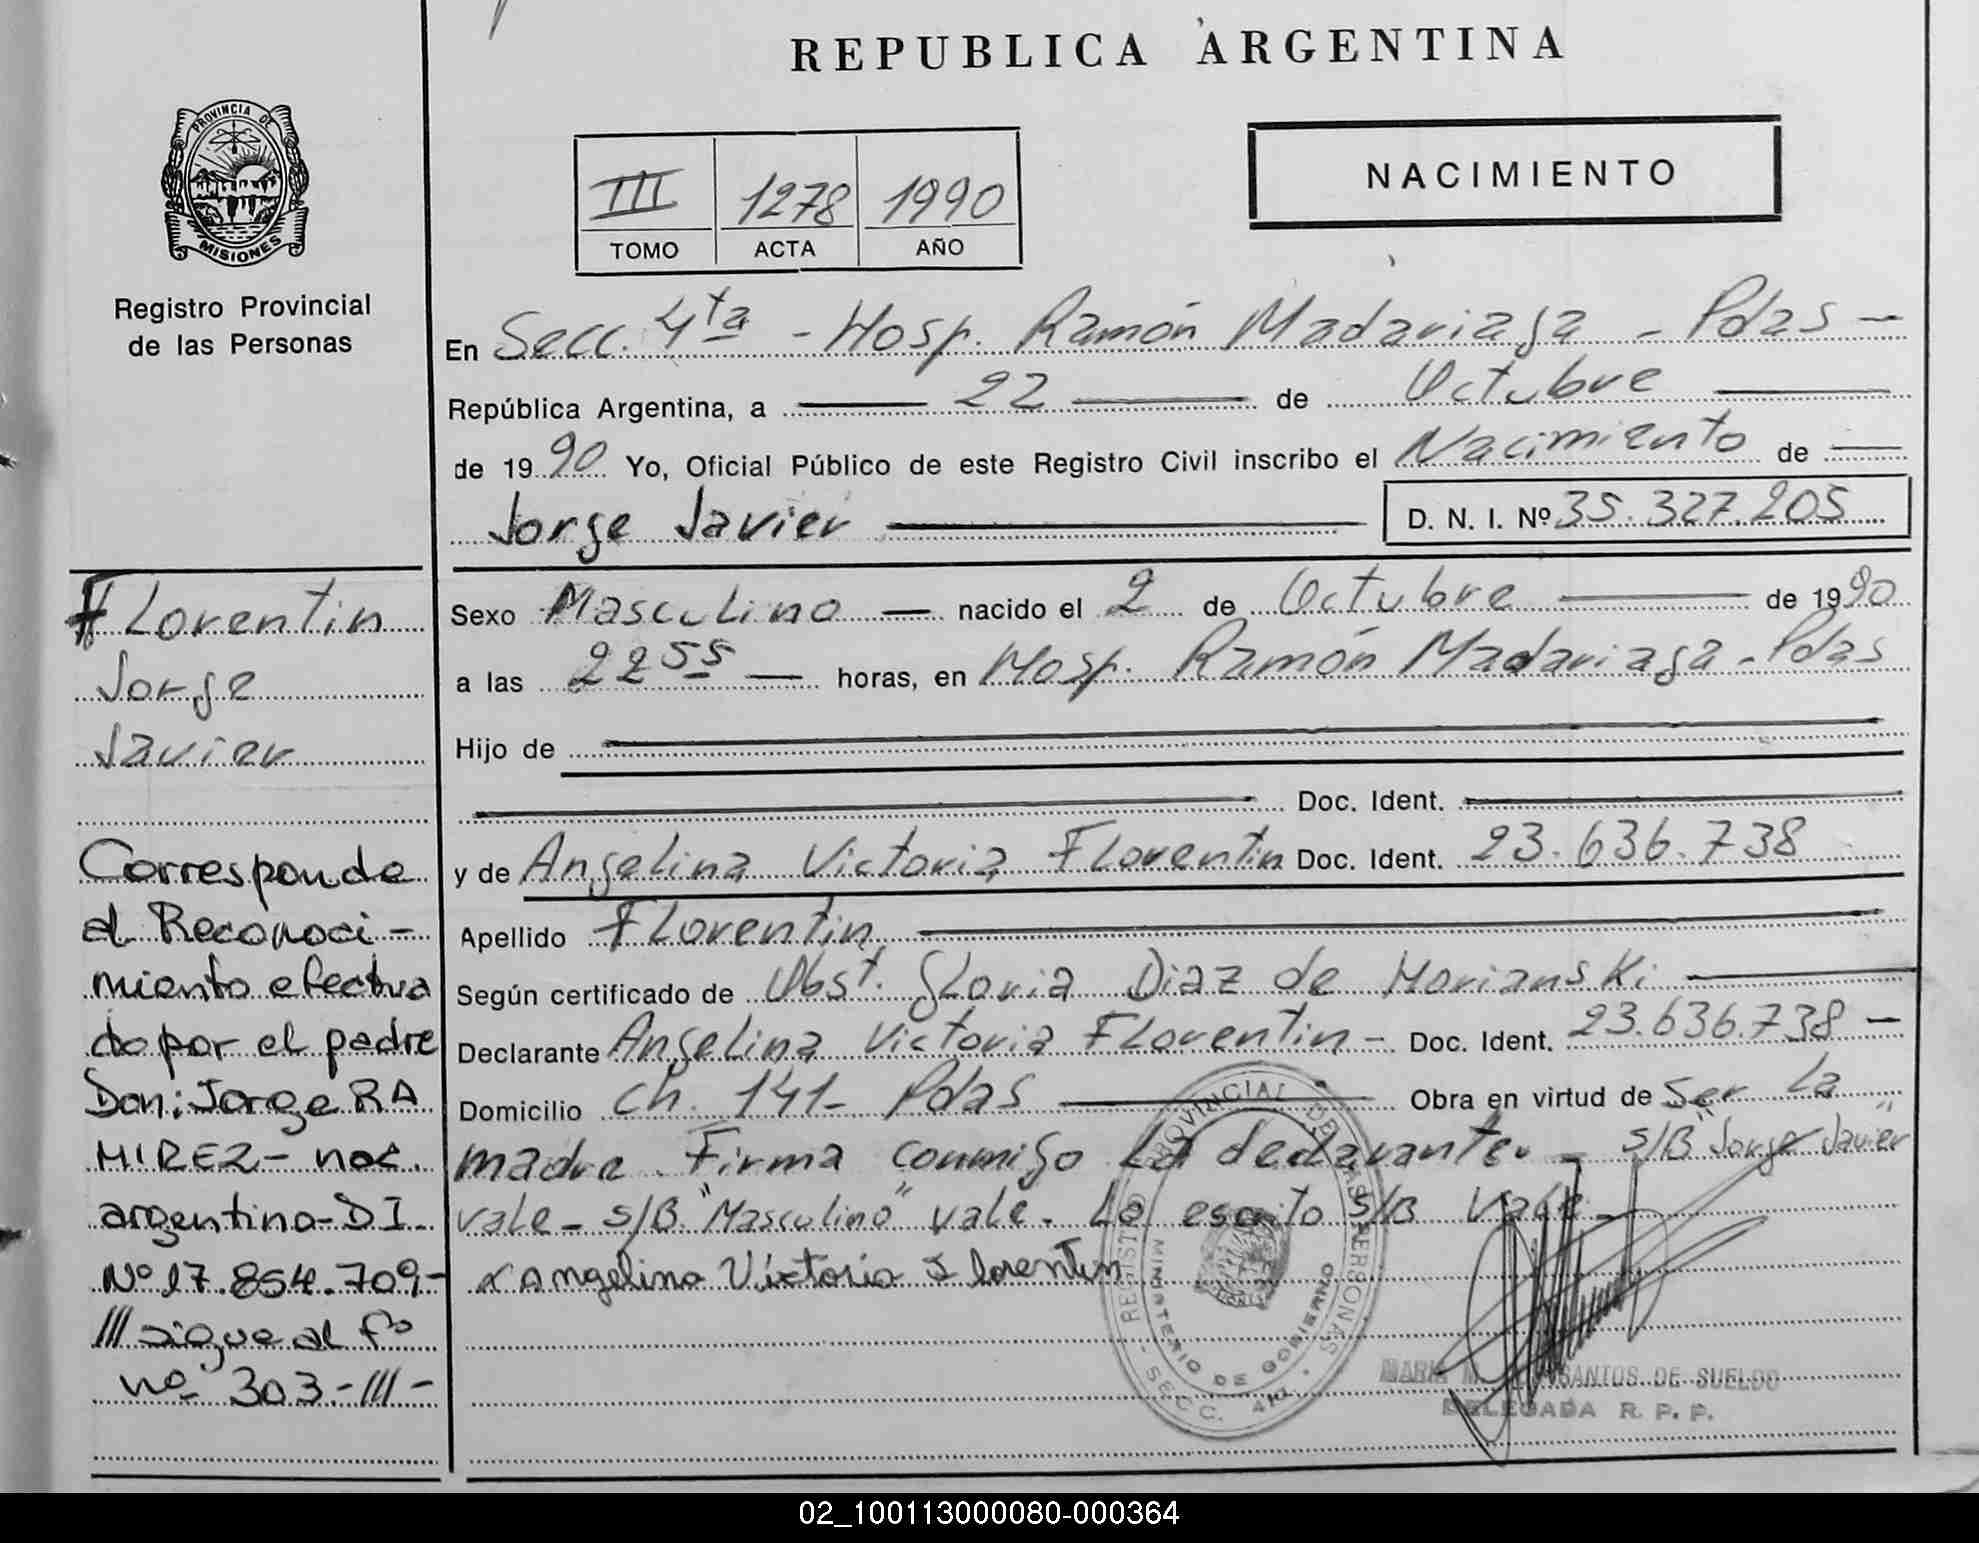 REPUBLICA ARGENTINA
PROVINCIA DE
MISIONES
Registro Provincial
de las Personas
III 1278 1990
TOMO ACTA AÑO
NACIMIENTO
En Secc. 4ta - Hosp. Ramón Madariaga - Pdas -
República Argentina, a 22 de Octubre
de 1990 Yo, Oficial Público de este Registro Civil inscribo el Nacimiento de
Jorge Javier D. N. I. Nº 35.327.205
Sexo Masculino nacido el 2 de Octubre de 1990
a las 22 55 horas, en Hosp. Ramón Madariaga - Pdas
Hijo de
Doc. Ident.
y de Angelina Victoria Florentin Doc. Ident. 23.636.738
Apellido Florentin
Según certificado de Obst. Gloria Diaz de Morianski
Declarante Angelina Victoria Florentin - Doc. Ident. 23.636.738 -
Domicilio Ch. 141 - Pdas Obra en virtud de Ser La
madre. Firma conmigo La declarante. - s/B "Jorge Javier"
vale - s/B "Masculino" vale. Lo escrito s/B Vale -
x Angelina Victoria Florentin
Florentin
Jorge
Javier
Corresponde
al Reconoci-
miento efectua
do por el padre
Don: Jorge RA
MIREZ - nac.
argentina - DI
Nº 17.854.709 -
/// sigue al fº
nº 303.-///-
REGISTRO PROVINCIAL DE LAS PERSONAS
MINISTERIO DE GOBIERNO
SECC. 4ta.
SANTOS DE SUELDO
DELEGADA R. P. P.
02_100113000080-000364